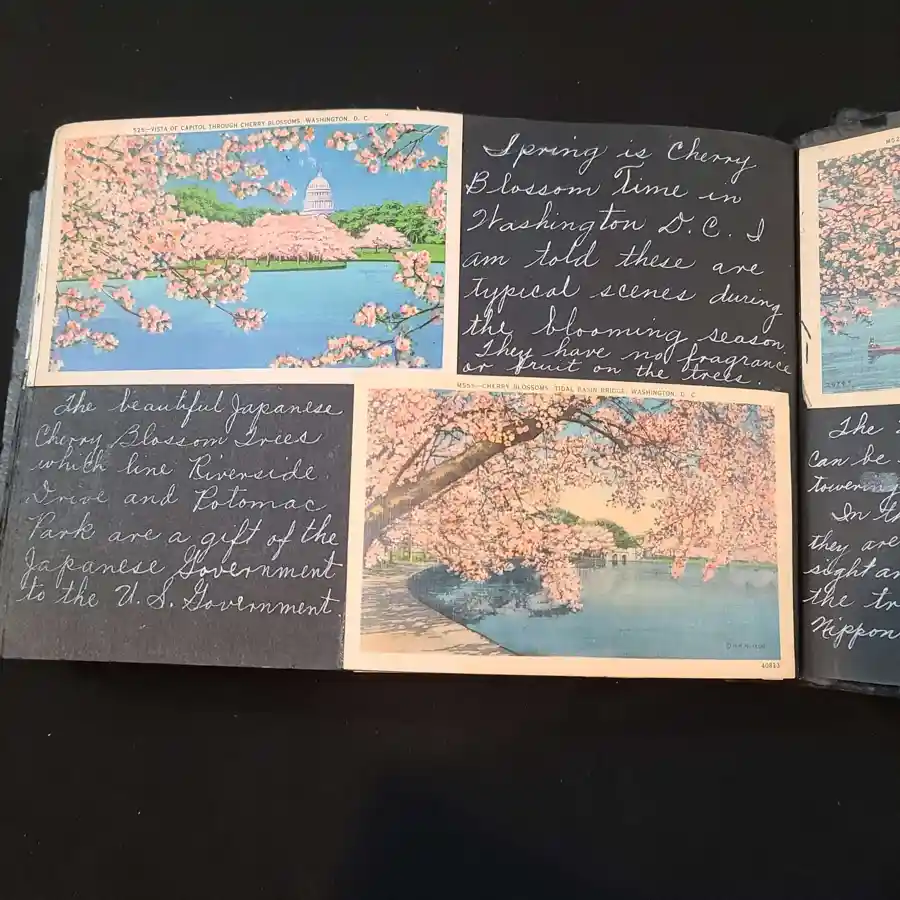 525:-VISTA OF CAPITOL THROUGH CHERRY BLOSSOMS, WASHINGTON, D. C.
Spring is Cherry
Blossom Time in
Washington D.C. I
am told these are
typical scenes during
the blooming season.
They have no fragrance
or fruit on the trees.
The beautiful Japanese
Cherry Blossom Trees
which line Riverside
Drive and Potomac
Park are a gift of the
Japanese Government
to the U. S. Government.
M555-CHERRY BLOSSOMS, TIDAL BASIN BRIDGE, WASHINGTON, D. C.
40813
M52
The
can be
towering
In th
they are
sight an
the tr
Nippon